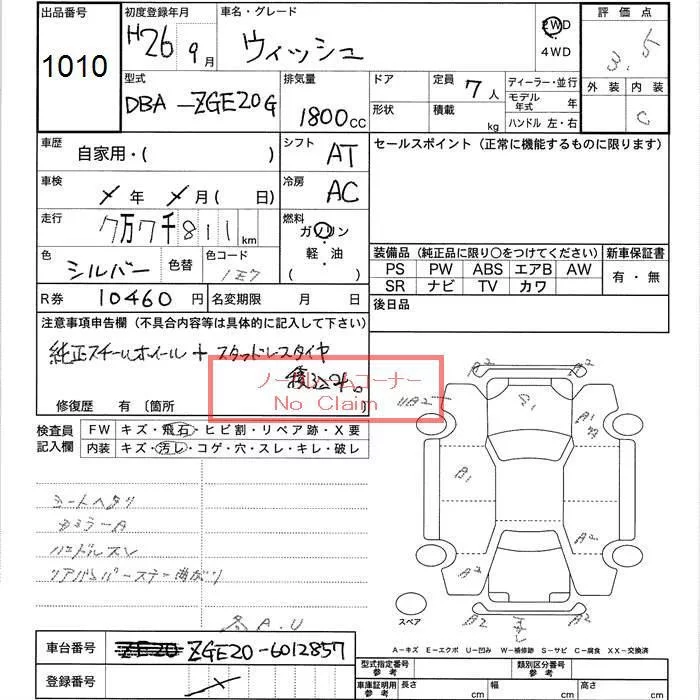 出品番号
1010
初度登録年月
H26 9月
車名・グレード
ウィッシュ
2WD
4WD
評価点
3.5
外装 内装
C
型式
DBA-ZGE20G
排気量
1800cc
ドア
形状
定員 7人
積載 kg
ディーラー・並行
モデル年式 年
ハンドル 左・右
車歴
自家用・( )
シフト AT
セールスポイント(正常に機能するものに限ります)
車検
年 月( 日)
冷房 AC
走行
7万7千811km
燃料
ガソリン
軽油
( )
色
シルバー
色替
色コード
1E7
装備品(純正品に限り○をつけてください)
新車保証書
PS PW ABS エアB AW
有・無
SR ナビ TV カワ
R券 10460円
名変期限 月 日
後日品
注意事項申告欄(不具合内容等は具体的に記入して下さい)
純正スチールホイール+スタッドレスタイヤ
積込み。
ノークレームコーナー
No Claim
修復歴 有〔箇所
検査員
記入欄
FW キズ・飛石・ヒビ割・リペア跡・X要
内装 キズ・汚レ・コゲ・穴・スレ・キレ・破レ
シートヘタリ
ハンドルスレ
リアバンパーステー曲がり
A.U
A2 A2
B1
A1
B1
A2
A2
A2 A2
スペア
A-キズ E-エクボ U-凹み W-補修跡 S-サビ C-腐食 XX-交換済
車台番号
ZE20 ZGE20-6012857
登録番号
型式指定番号
参考
類別区分番号
参考
車庫証明用
参考
長さ cm
幅 cm
高さ cm